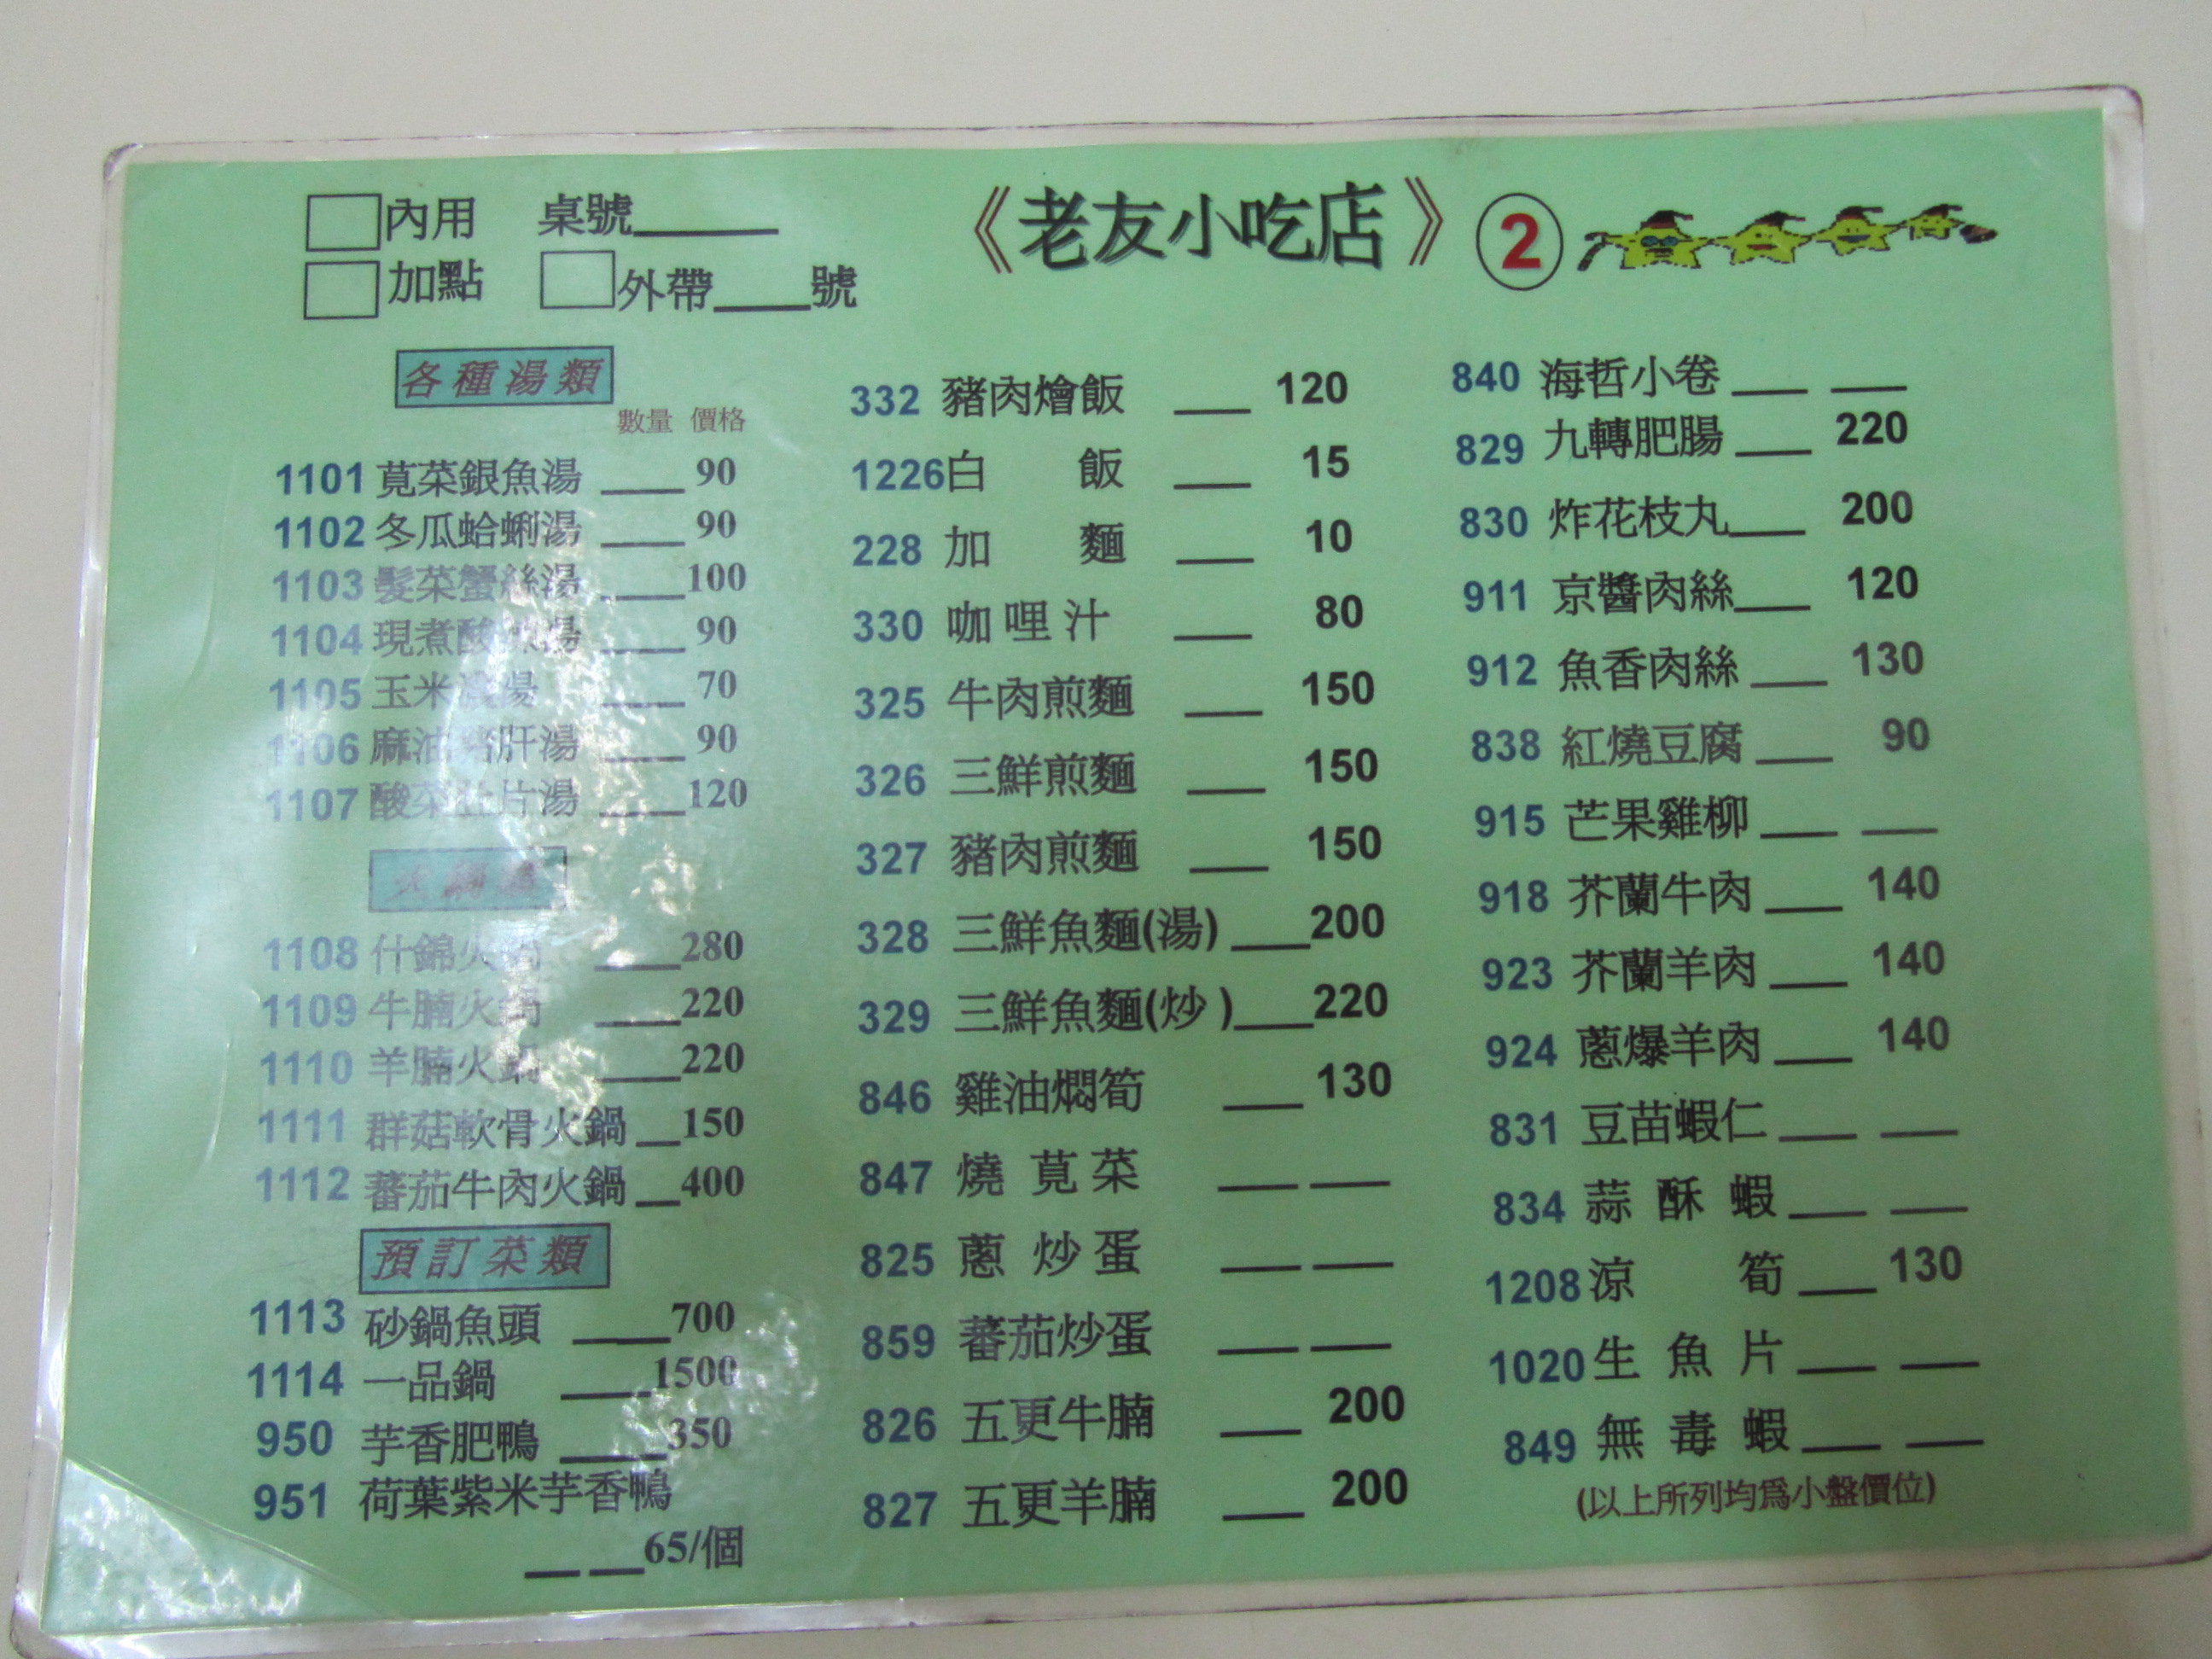 內用 桌號
加點 外帶 號
《老友小吃店》 2
各種湯類
數量 價格
1101 莧菜銀魚湯 90
1102 冬瓜蛤蜊湯 90
1103 髮菜蟹絲湯 100
1104 現煮酸 湯 90
1105 玉米濃湯 70
1106 麻油豬肝湯 90
1107 酸菜 片湯 120
火鍋類
1108 什錦火鍋 280
1109 牛腩火鍋 220
1110 羊腩火鍋 220
1111 群菇軟骨火鍋 150
1112 蕃茄牛肉火鍋 400
預訂菜類
1113 砂鍋魚頭 700
1114 一品鍋 1500
950 芋香肥鴨 350
951 荷葉紫米芋香鴨
65/個
332 豬肉燴飯 120
1226 白 飯 15
228 加 麵 10
330 咖哩汁 80
325 牛肉煎麵 150
326 三鮮煎麵 150
327 豬肉煎麵 150
328 三鮮魚麵(湯) 200
329 三鮮魚麵(炒) 220
846 雞油燜筍 130
847 燒莧菜
825 蔥炒蛋
859 蕃茄炒蛋
826 五更牛腩 200
827 五更羊腩 200
840 海哲小卷
829 九轉肥腸 220
830 炸花枝丸 200
911 京醬肉絲 120
912 魚香肉絲 130
838 紅燒豆腐 90
915 芒果雞柳
918 芥蘭牛肉 140
923 芥蘭羊肉 140
924 蔥爆羊肉 140
831 豆苗蝦仁
834 蒜酥蝦
1208 涼 筍 130
1020 生魚片
849 無毒蝦
(以上所列均爲小盤價位)